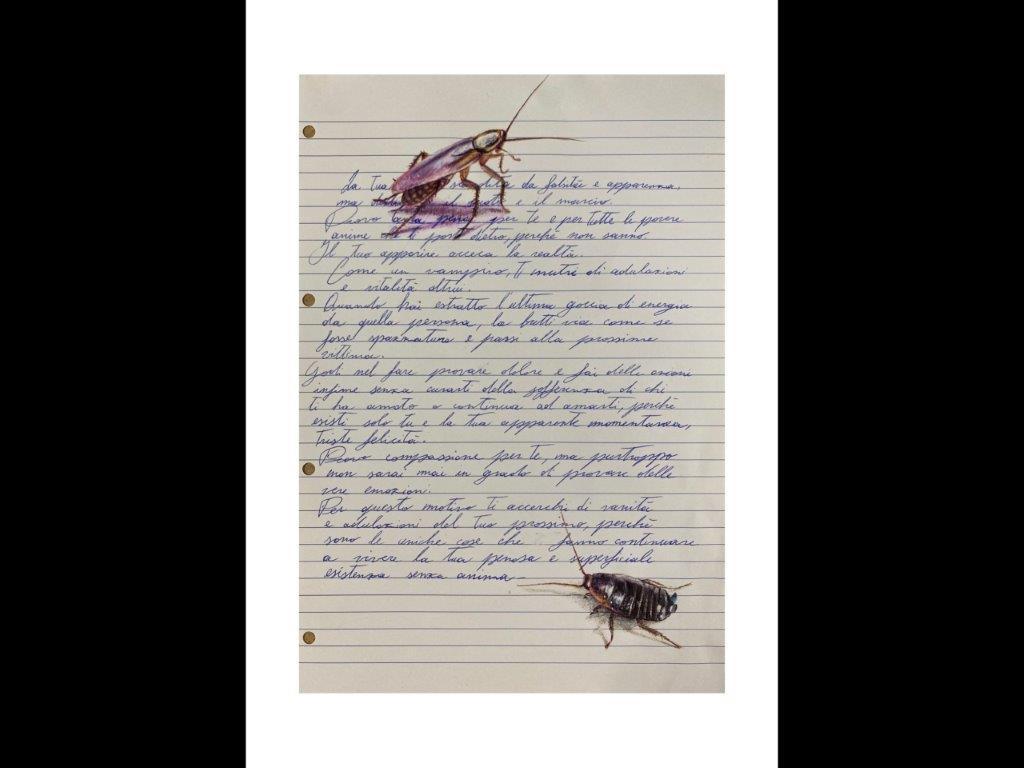 La tua da falsità e apparenza,
ma il vuoto e il marcio.
Provo tanta pena per te e per tutte le povere
anime che ti port dietro, perché non sanno.
Il tuo apparire acceca la realtà.
Come un vampiro, ti nutri di adulazioni
e vitalità altrui.
Quando hai estratto l'ultima goccia di energia
da quella persona, la butti via come se
fosse spazzatura e passi alla prossima
vittima.
Godi nel fare provare dolore e fai delle azioni
infime senza curarti della sofferenza di chi
ti ha amato o continua ad amarti, perché
esisti solo tu e la tua apparente momentanea,
triste felicità.
Provo compassione per te, ma purtroppo
non sarai mai in grado di provare delle
vere emozioni.
Per questo motivo ti accerchi di vanità
e adulazioni del tuo prossimo, perché
sono le uniche cose che fanno continuare
a vivere la tua penosa e superficiale
esistenza senza anima-